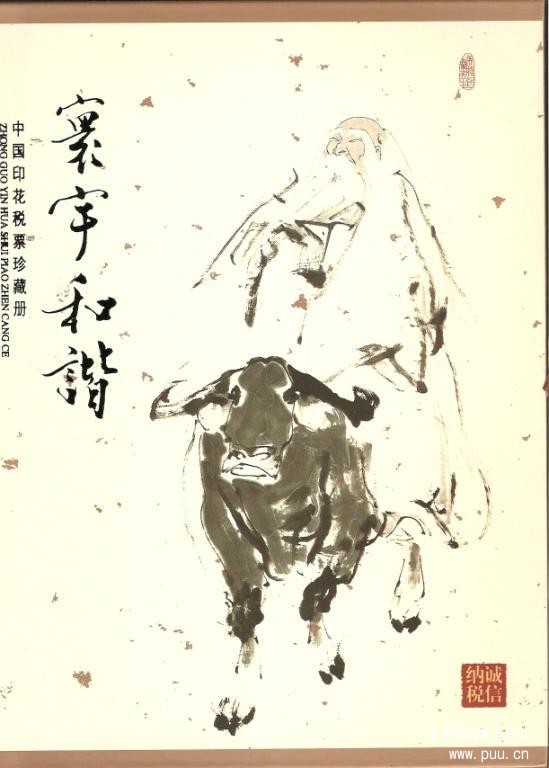 寰宇和諧
中国印花税票珍藏册
ZHONG GUO YIN HUA SHUI PIAO ZHEN CANG CE
诚信
纳税
www.puu.cn